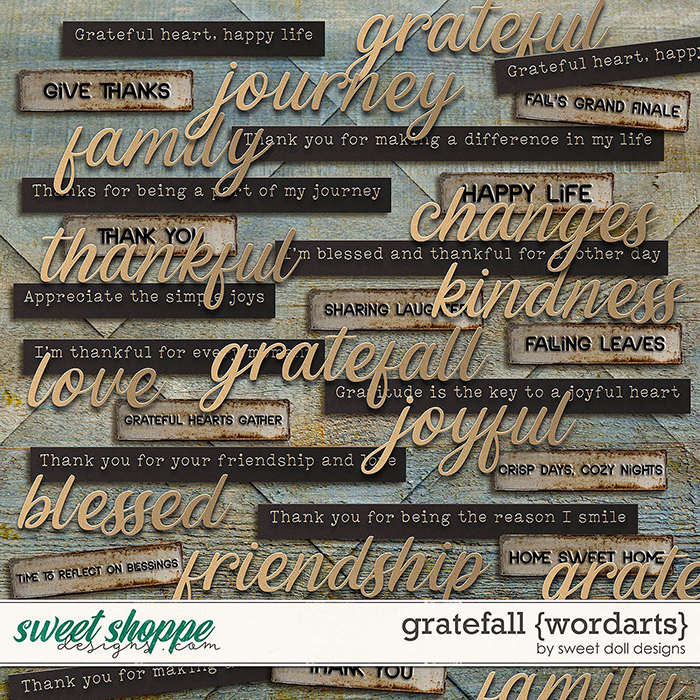 Grateful heart, happy life
grateful
Grateful heart, happy
GIVE THANKS
journey
FALL'S GRAND FINALE
family
Thank you for making a difference in my life
Thanks for being a part of my journey
HAPPY LIFE
changes
THANK YOU
thankful
I'm blessed and thankful for another day
Appreciate the simple joys
kindness
SHARING LAUGHTER
gratefall
FALLING LEAVES
I'm thankful for every moment
love
Gratitude is the key to a joyful heart
GRATEFUL HEARTS GATHER
joyful
Thank you for your friendship and love
CRISP DAYS, COZY NIGHTS
blessed
Thank you for being the reason I smile
TIME TO REFLECT ON BLESSINGS
friendship
HOME SWEET HOME
grate
sweet shoppe
designs.com
gratefall {wordarts}
by sweet doll designs
Thank you for making a
THANK YOU
family